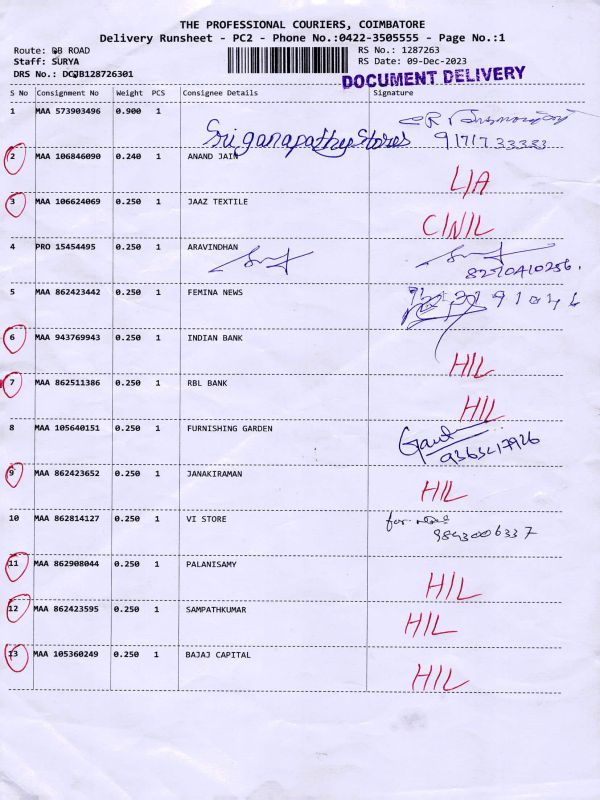 THE PROFESSIONAL COURIERS, COIMBATORE
Delivery Runsheet - PC2 - Phone No.:0422-3505555 - Page No.:1
Route: DB ROAD RS No.: 1287263
Staff: SURYA RS Date: 09-Dec-2023
DRS No.: DCJB128726301 DOCUMENT DELIVERY
S No Consignment No Weight PCS Consignee Details Signature
1 MAA 573903496 0.900 1
Sri ganapathy Stores 9171733333
2 MAA 106846090 0.240 1 ANAND JAIN
L/A
3 MAA 106624069 0.250 1 JAAZ TEXTILE
C/N/L
4 PRO 15454495 0.250 1 ARAVINDHAN
8270410256.
5 MAA 862423442 0.250 1 FEMINA NEWS
6 MAA 943769943 0.250 1 INDIAN BANK
H/L
7 MAA 862511386 0.250 1 RBL BANK
H/L
8 MAA 105640151 0.250 1 FURNISHING GARDEN
9363417926
9 MAA 862423652 0.250 1 JANAKIRAMAN
H/L
10 MAA 862814127 0.250 1 VI STORE for
9843006337
11 MAA 862908044 0.250 1 PALANISAMY
H/L
12 MAA 862423595 0.250 1 SAMPATHKUMAR
H/L
13 MAA 105360249 0.250 1 BAJAJ CAPITAL
H/L